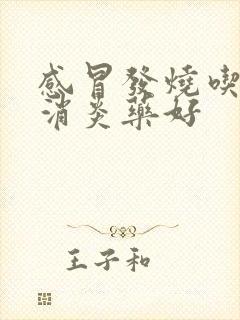 感冒發燒喫
消炎藥好
王子和